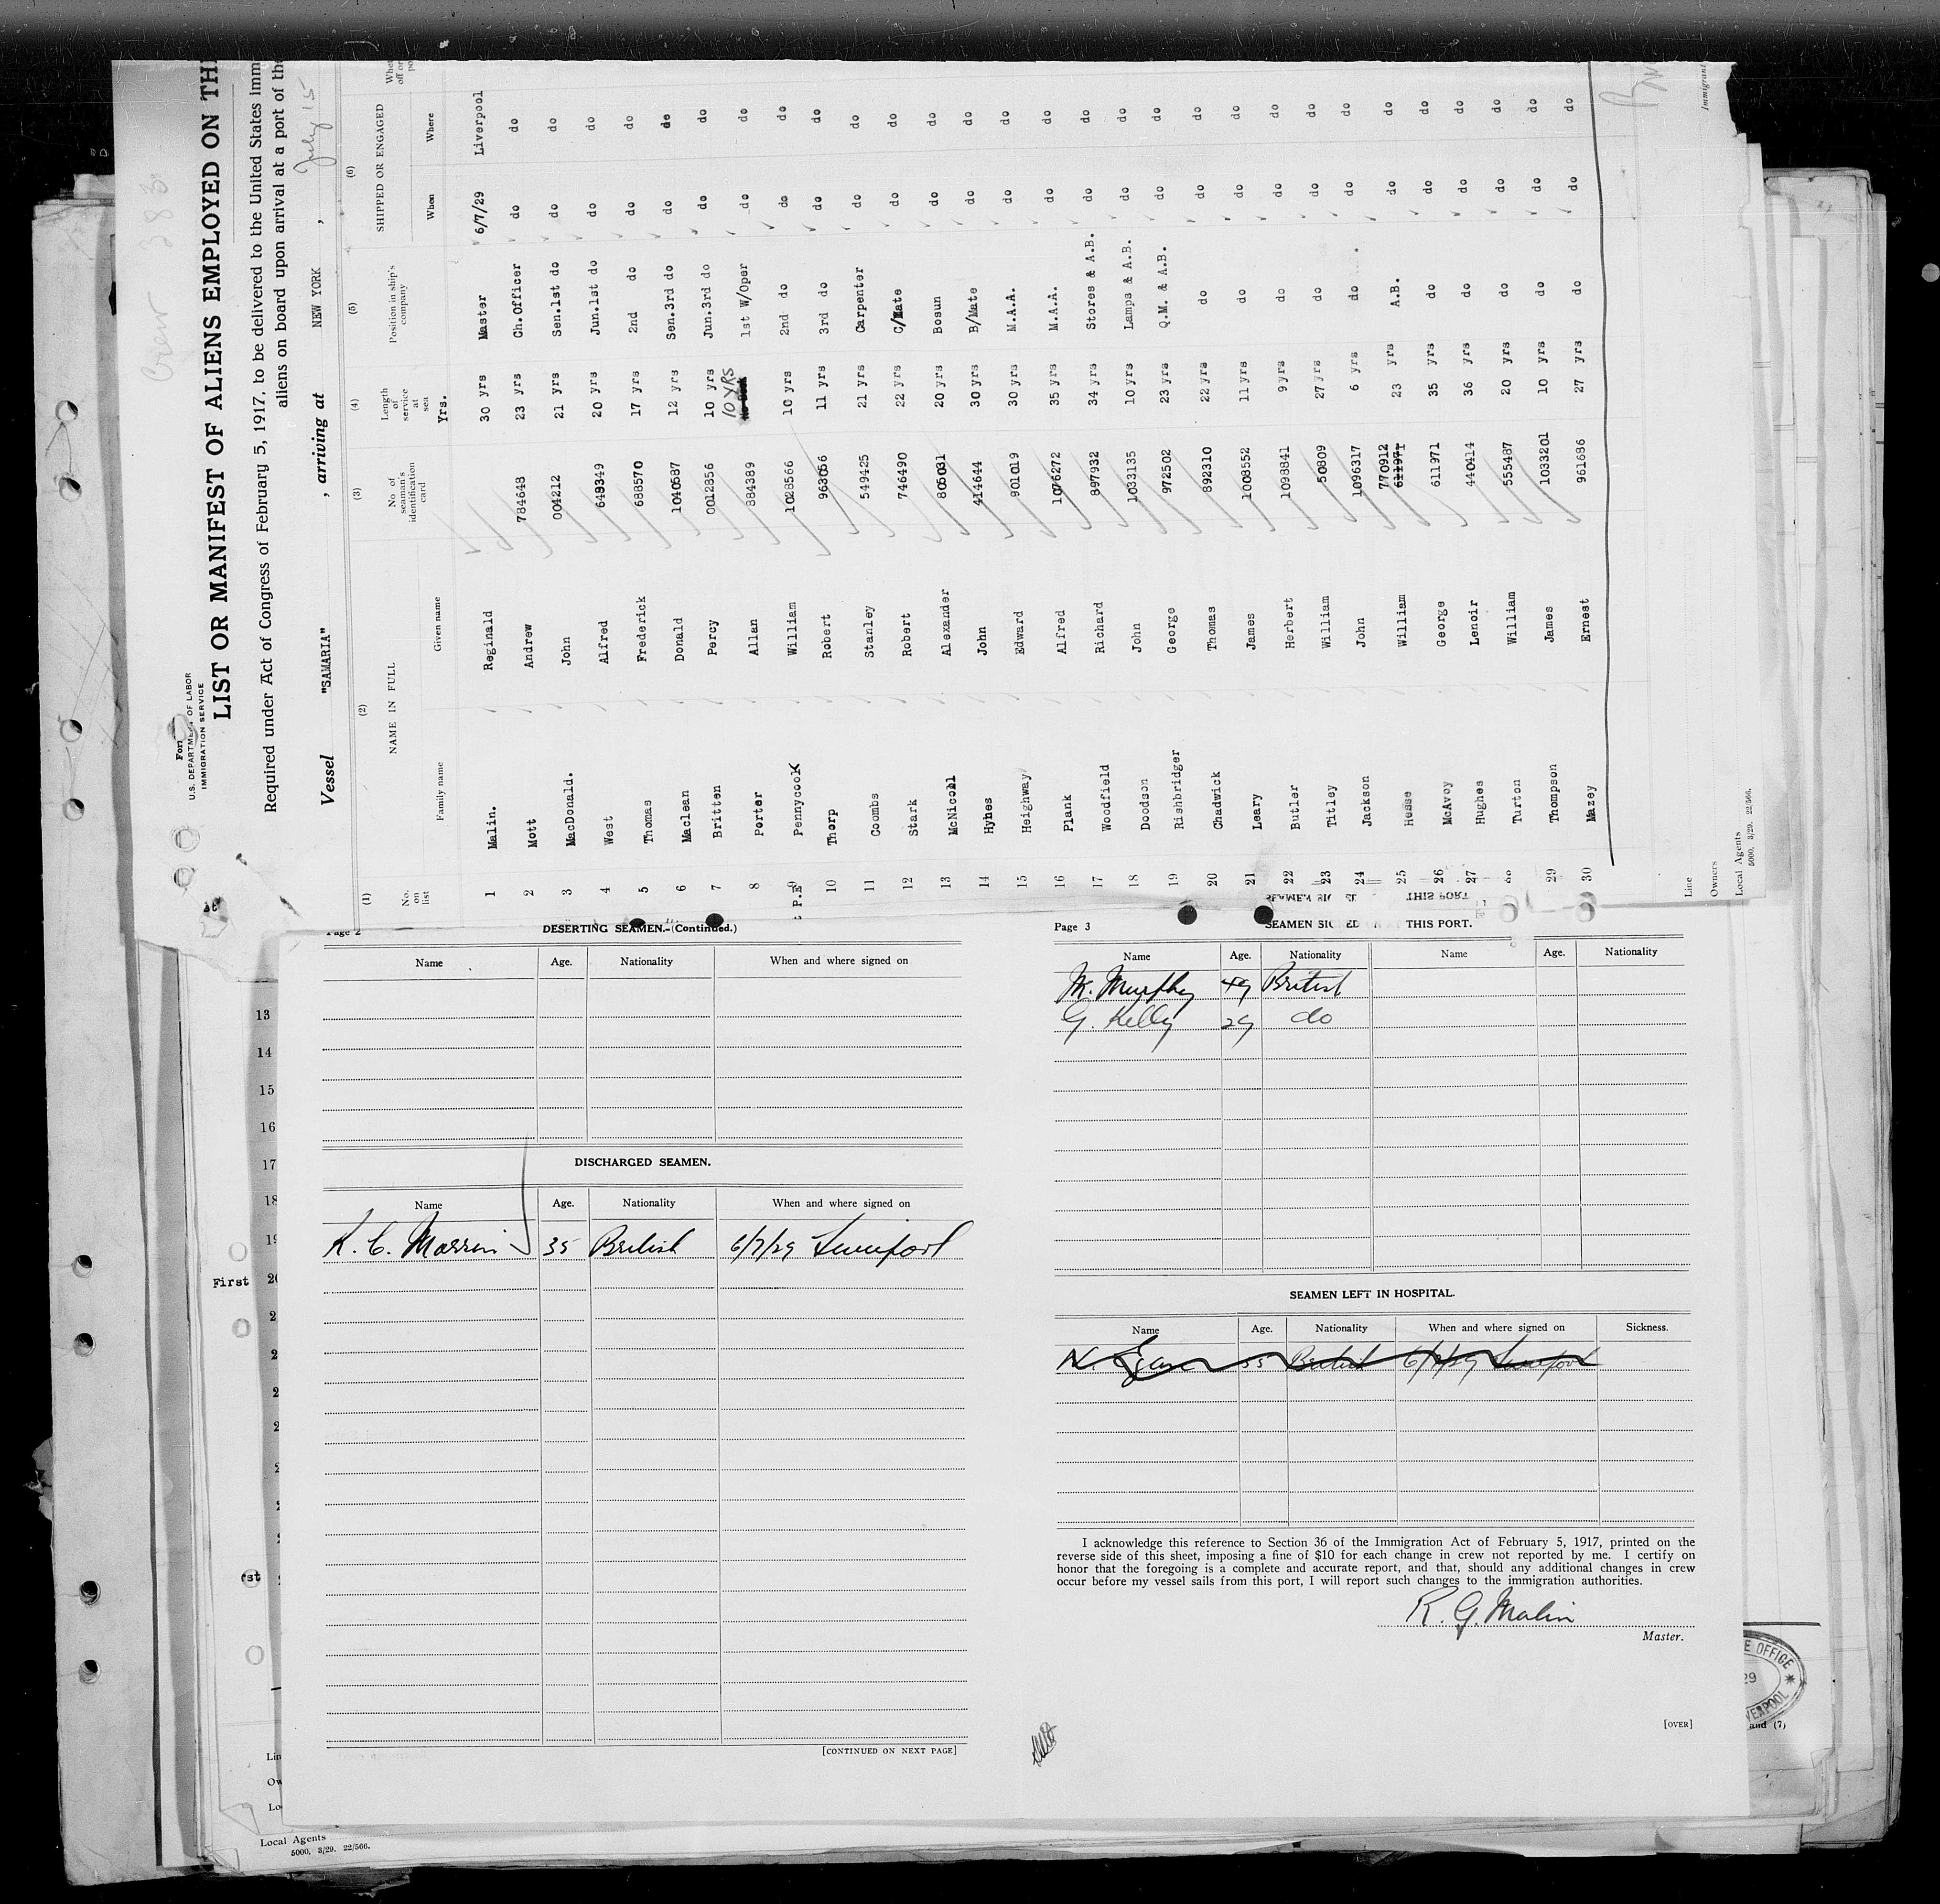 Crew 383
U.S. DEPARTMENT OF LABOR
IMMIGRATION SERVICE
LIST OR MANIFEST OF ALIENS EMPLOYED ON TH
Required under Act of Congress of February 5, 1917, to be delivered to the United States imm
aliens on board upon arrival at a port of the
Vessel "SAMARIA" , arriving at NEW YORK , July 15
(1) (2) (3) (4) (5) (6)
No. on list NAME IN FULL Family name Given name No. of seaman's identification card Length of service at sea Yrs. Position in ship's company SHIPPED OR ENGAGED When Where
1 Malin. Reginald 30 yrs Master 6/7/29 Liverpool
2 Mott Andrew 784648 23 yrs Ch.Officer do do
3 MacDonald. John 004212 21 yrs Sen.1st do do do
4 West Alfred 648349 20 yrs Jun.1st do do do
5 Thomas Frederick 688570 17 yrs 2nd do do do
6 Maclean Donald 1040587 12 yrs Sen.3rd do do do
7 Britten Percy 0012856 10 yrs Jun.3rd do do do
8 Porter Allan 884389 10 YRS 1st W/Oper do do
9 Pennycook William 1028566 10 yrs 2nd do do do
10 Thorp Robert 963056 11 yrs 3rd do do do
11 Coombs Stanley 549425 21 yrs Carpenter do do
12 Stark Robert 746490 22 yrs C/Mate do do
13 McNicoll Alexander 805031 20 yrs Bosun do do
14 Hynes John 414644 30 yrs B/Mate do do
15 Heighway Edward 901019 30 yrs M.A.A. do do
16 Plank Alfred 1076272 35 yrs M.A.A. do do
17 Woodfield Richard 897932 34 yrs Stores & A.B. do do
18 Doodson John 1033135 10 yrs Lamps & A.B. do do
19 Rishbridger George 972502 23 yrs Q.M. & A.B. do do
20 Chadwick Thomas 892310 22 yrs do do do
21 Leary James 1008552 11 yrs do do do
22 Butler Herbert 1098841 9 yrs do do do
23 Titley William 50809 27 yrs do do do
24 Jackson John 1096317 6 yrs do do do
25 Hesse William 770912 23 yrs A.B. do do
26 McAvoy George 611971 35 yrs do do do
27 Hughes Lenoir 440414 36 yrs do do do
28 Turton William 555487 20 yrs do do do
29 Thompson James 1033201 10 yrs do do do
30 Mazey Ernest 961686 27 yrs do do do
Line
Owners
Local Agents
5000, 3/29. 22/566.
Immigrant
Page 2
DESERTING SEAMEN.-(Continued.)
Name Age. Nationality When and where signed on
13
14
15
16
17
18
19
First
DISCHARGED SEAMEN.
Name Age. Nationality When and where signed on
K. C. Marrin 35 British 6/7/29 Liverpool
[CONTINUED ON NEXT PAGE]
Local Agents
5000, 3/29. 22/566.
Page 3
THIS PORT.
Name Age. Nationality Name Age. Nationality
M. Murphy 49 British
G. Kelly 29 do
SEAMEN LEFT IN HOSPITAL.
Name Age. Nationality When and where signed on Sickness.
British 6/7/29 Liverpool
I acknowledge this reference to Section 36 of the Immigration Act of February 5, 1917, printed on the
reverse side of this sheet, imposing a fine of $10 for each change in crew not reported by me. I certify on
honor that the foregoing is a complete and accurate report, and that, should any additional changes in crew
occur before my vessel sails from this port, I will report such changes to the immigration authorities.
R. G. Malin
Master.
[OVER]
and (7)